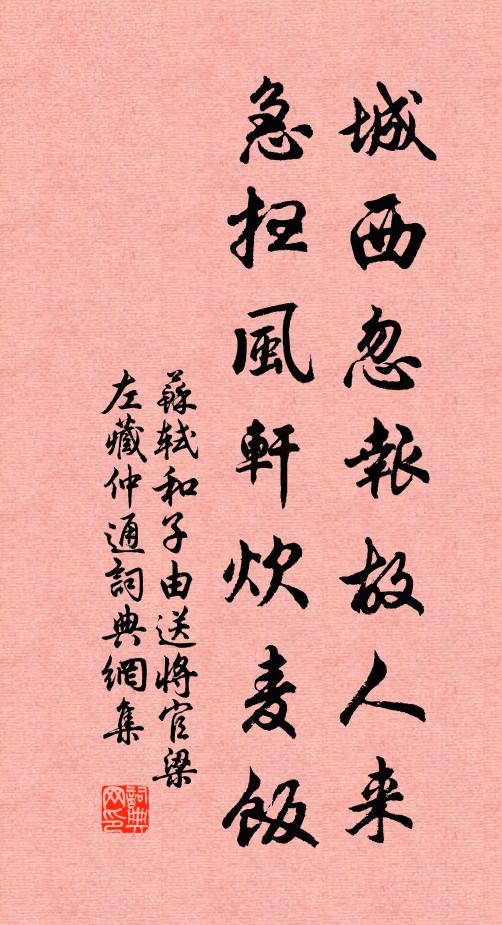 城西忽報故人来
急扫風軒炊麦飯
蘇軾和子由送將官梁
左藏仲通詞典網集
詞典网印